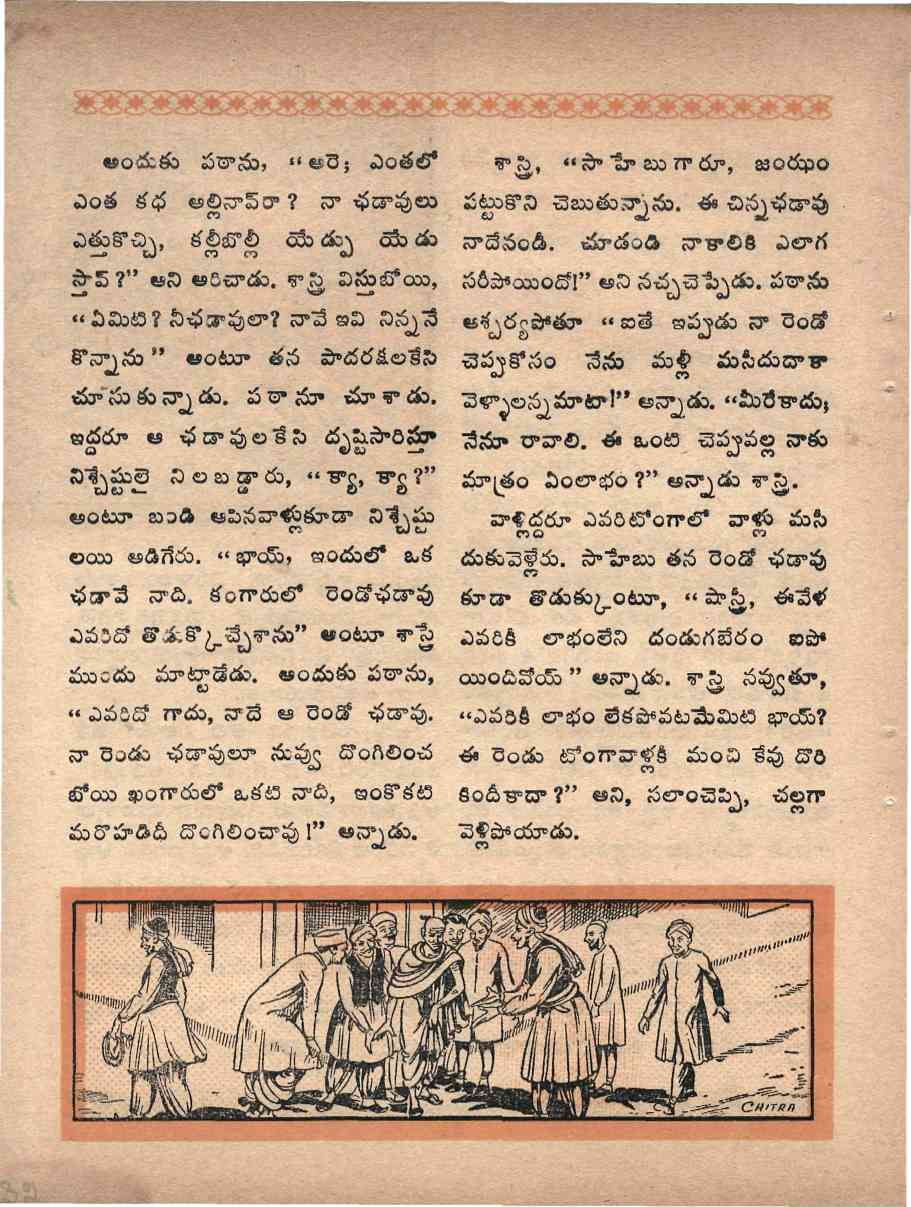 అందుకు పఠాను, “అరె; ఎంతలో
ఎంత కధ అల్లినావ్‌రా? నా ఛడావులు
ఎత్తుకొచ్చి, కల్లీబొల్లీ యేడ్పు యేడు
స్తావ్?” అని అరిచాడు. శాస్త్రి విస్తుబోయి,
“ఏమిటి? నీఛడావులా? నావే ఇవి నిన్ననే
కొన్నాను” అంటూ తన పాదరక్షలకేసి
చూసుకున్నాడు. పఠానూ చూశాడు.
ఇద్దరూ ఆ ఛడావులకేసి దృష్టిసారిస్తూ
నిశ్చేష్టులై నిలబడ్డారు, “క్యా, క్యా?”
అంటూ బండి ఆపినవాళ్లుకూడా నిశ్చేష్టు
లయి అడిగేరు. “భాయ్, ఇందులో ఒక
ఛడావే నాది. కంగారులో రెండోఛడావు
ఎవరిదో తొడుక్కొచ్చేశాను” అంటూ శాస్త్రే
ముందు మాట్టాడేడు. అందుకు పఠాను,
“ఎవరిదో గాదు, నాదే ఆ రెండో ఛడావు.
నా రెండు ఛడావులూ నువ్వు దొంగిలించ
బోయి ఖంగారులో ఒకటి నాది, ఇంకొకటి
మరొహడిదీ దొంగిలించావు!” అన్నాడు.
శాస్త్రి, “సాహేబుగారూ, జంఝం
పట్టుకొని చెబుతున్నాను. ఈ చిన్నఛడావు
నాదేనండీ. చూడండి నాకాలికి ఎలాగ
సరీపోయిందో!” అని నచ్చచెప్పేడు. పఠాను
ఆశ్చర్యపోతూ “ఐతే ఇప్పుడు నా రెండో
చెప్పుకోసం నేను మళ్లీ మసీదుదాకా
వెళ్ళాలన్నమాటా!” అన్నాడు. “మీరేకాదు;
నేనూ రావాలి. ఈ ఒంటి చెప్పువల్ల నాకు
మాత్రం ఏంలాభం?” అన్నాడు శాస్త్రి.
వాళ్లిద్దరూ ఎవరిటోంగాలో వాళ్లు మసీ
దుకువెళ్లేరు. సాహేబు తన రెండో ఛడావు
కూడా తొడుక్కుంటూ, “షాస్త్రీ, ఈవేళ
ఎవరికీ లాభంలేని దండుగబేరం ఐపో
యిందివోయ్” అన్నాడు. శాస్త్రి నవ్వుతూ,
“ఎవరికీ లాభం లేకపోవటమేమిటి భాయ్?
ఈ రెండు టోంగావాళ్లకీ మంచి కేవు దొరి
కిందీకాదా?” అని, సలాంచెప్పి, చల్లగా
వెళ్లిపోయాడు.
CHITRA